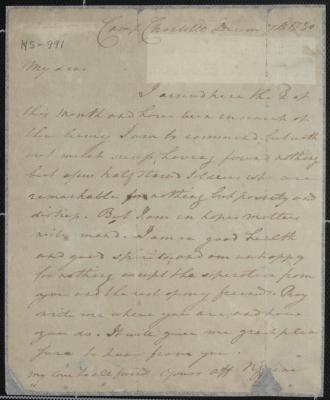 NS-991
Camp Charlotte Decem 7th 1780
My dear
I arrived here the 2d of
this month and have been in search of
the Army I am to command, but with
out much success, having found nothing
but a few half starved Soldiers who are
remarkable for nothing but poverty and
distress. But I am in hopes matters
will mend. I am in good health
and good spirits; and am unhappy
for nothing except the seperation from
you and the rest of my friends. Pray
write me where you are, and how
you do. It will give me great plea
sure to hear from you.
My love to all friends Yours aff N Greene